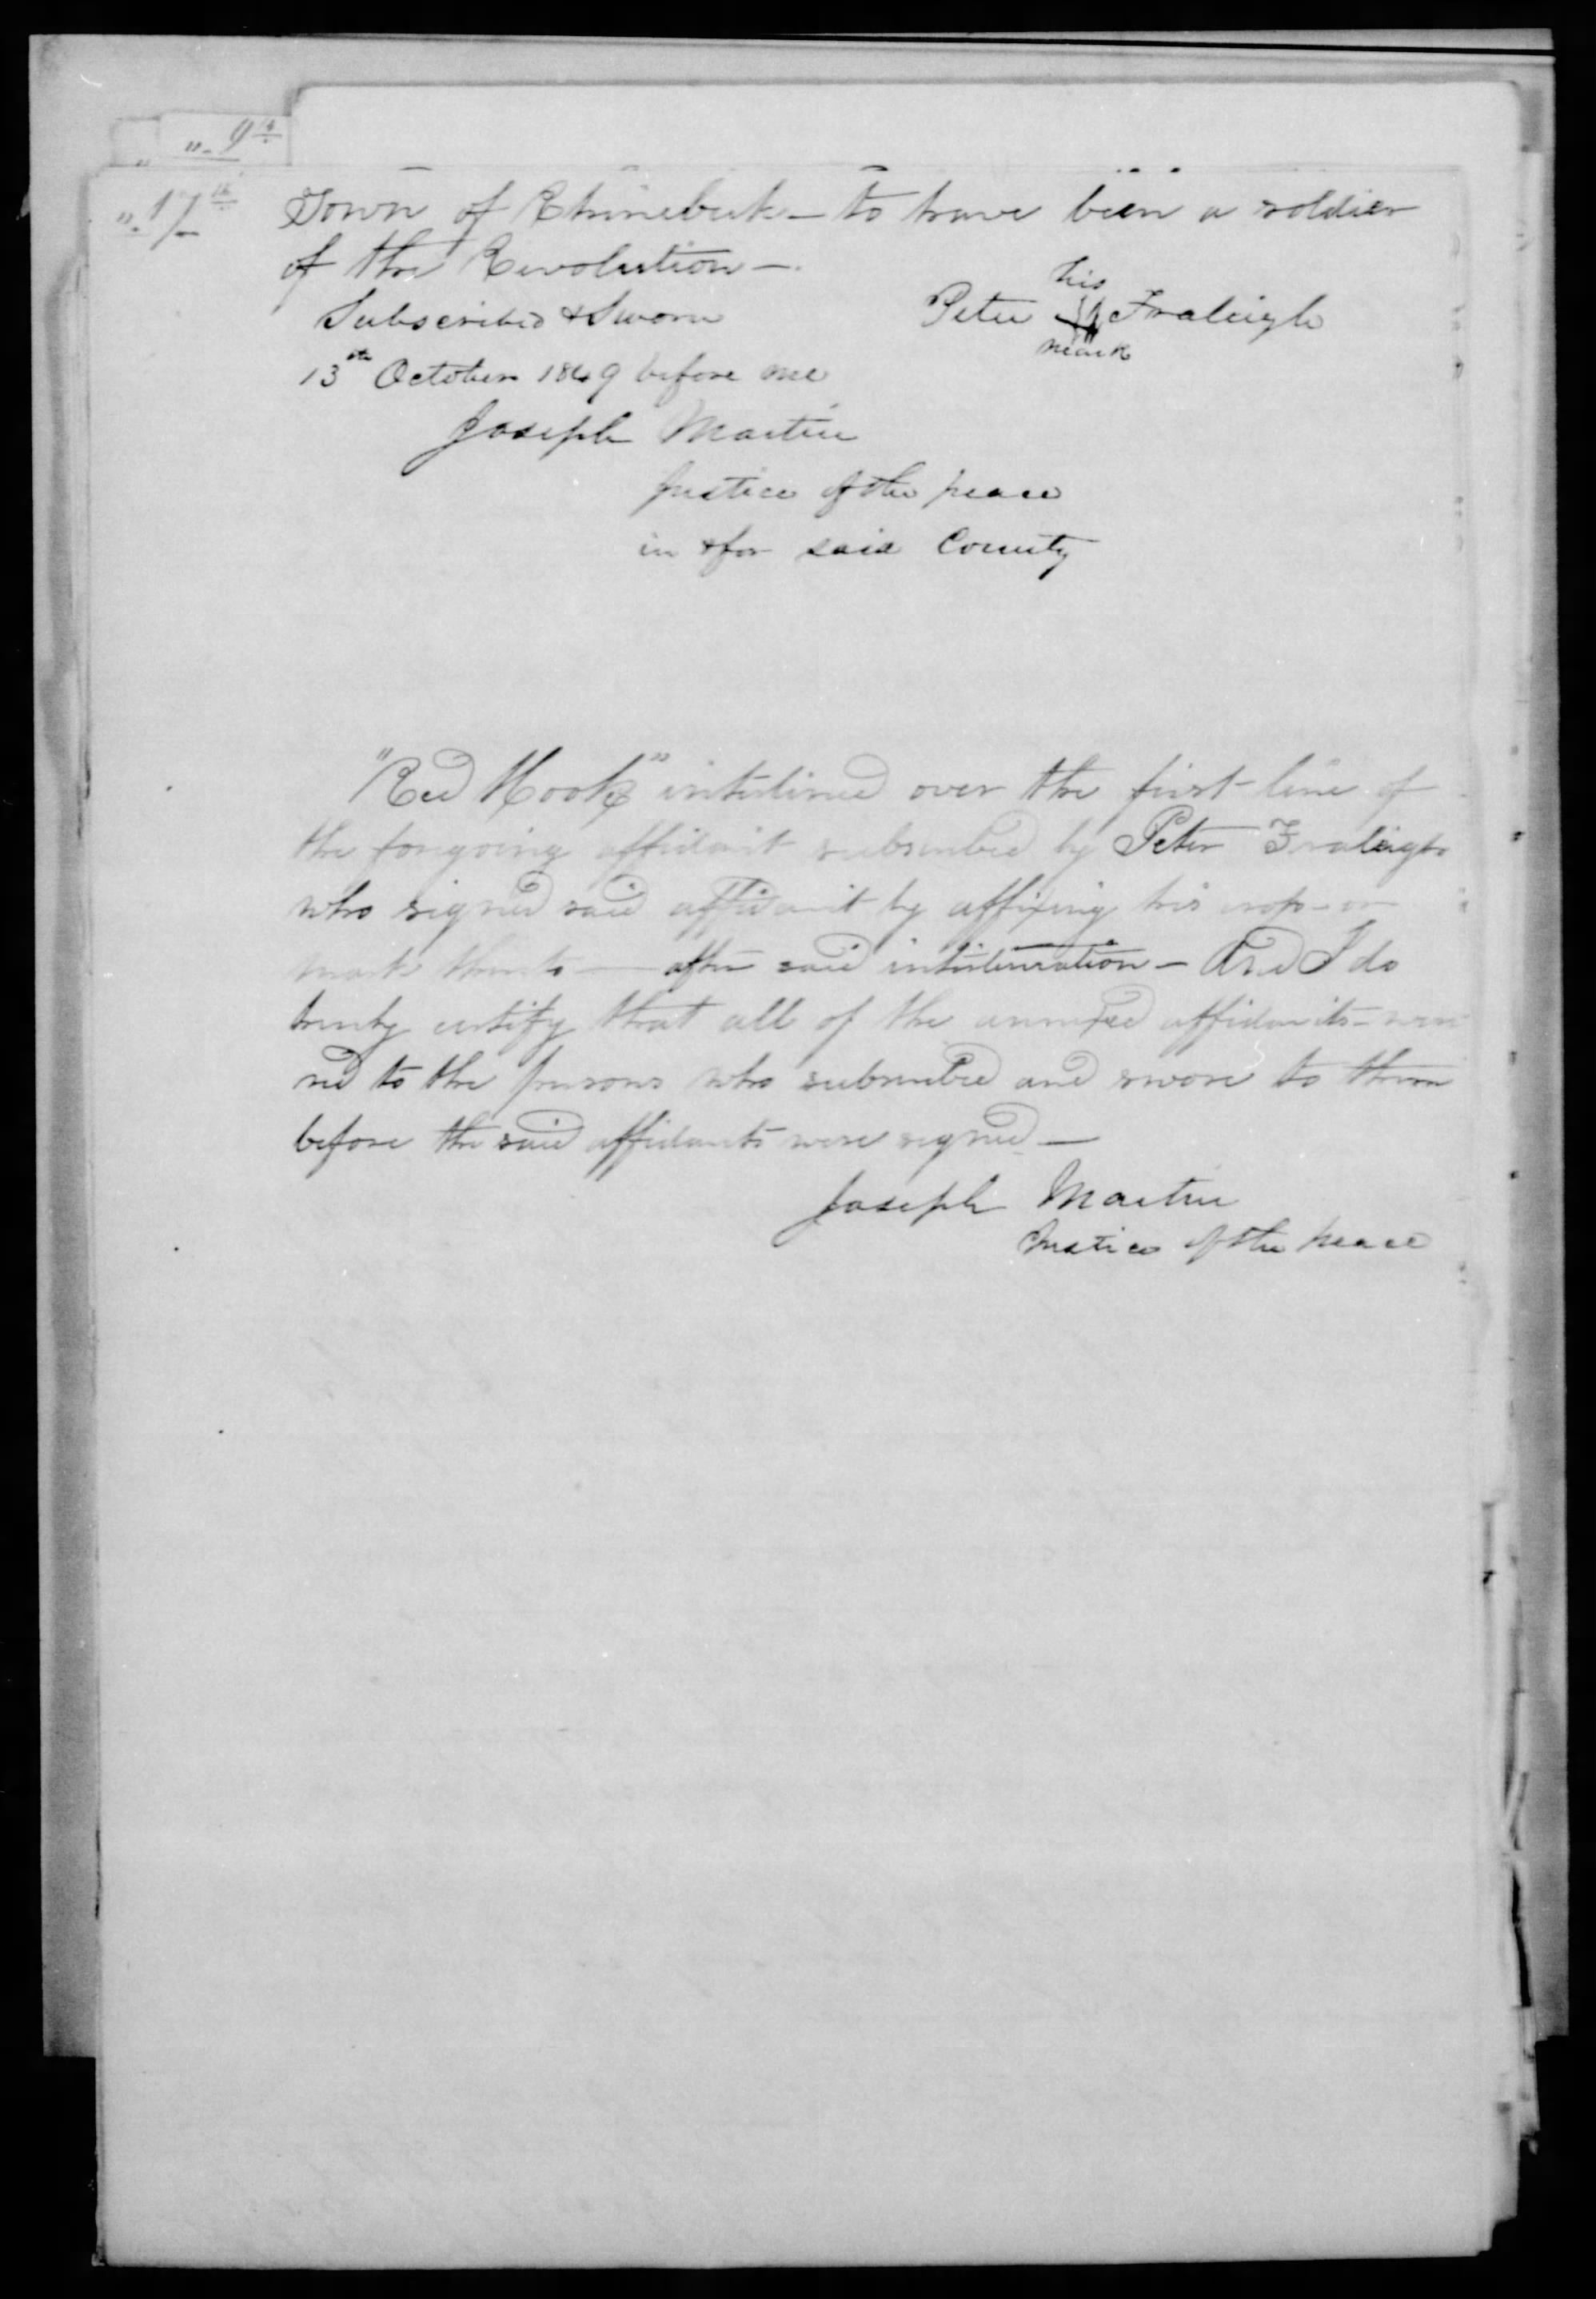 "- 9th
"- 17th
Town of Rhinebeck - to have been a soldier
of the Revolution -
his
Peter Fraleigh
mark
Subscribed & Sworn
13th October 1849 before me
Joseph Martin
Justice of the peace
in & for said County
"Red Hook" interlined over the first line of
the foregoing affidavit subscribed by Peter Fraleigh
who signed said affidavit by affixing his cross or
mark thereto - after said interlineation - And I do
hereby certify that all of the annexed affidavits - were
red to the persons who subscribed and swore to them
before the said affidavits were signed -
Joseph Martin
Justice of the peace